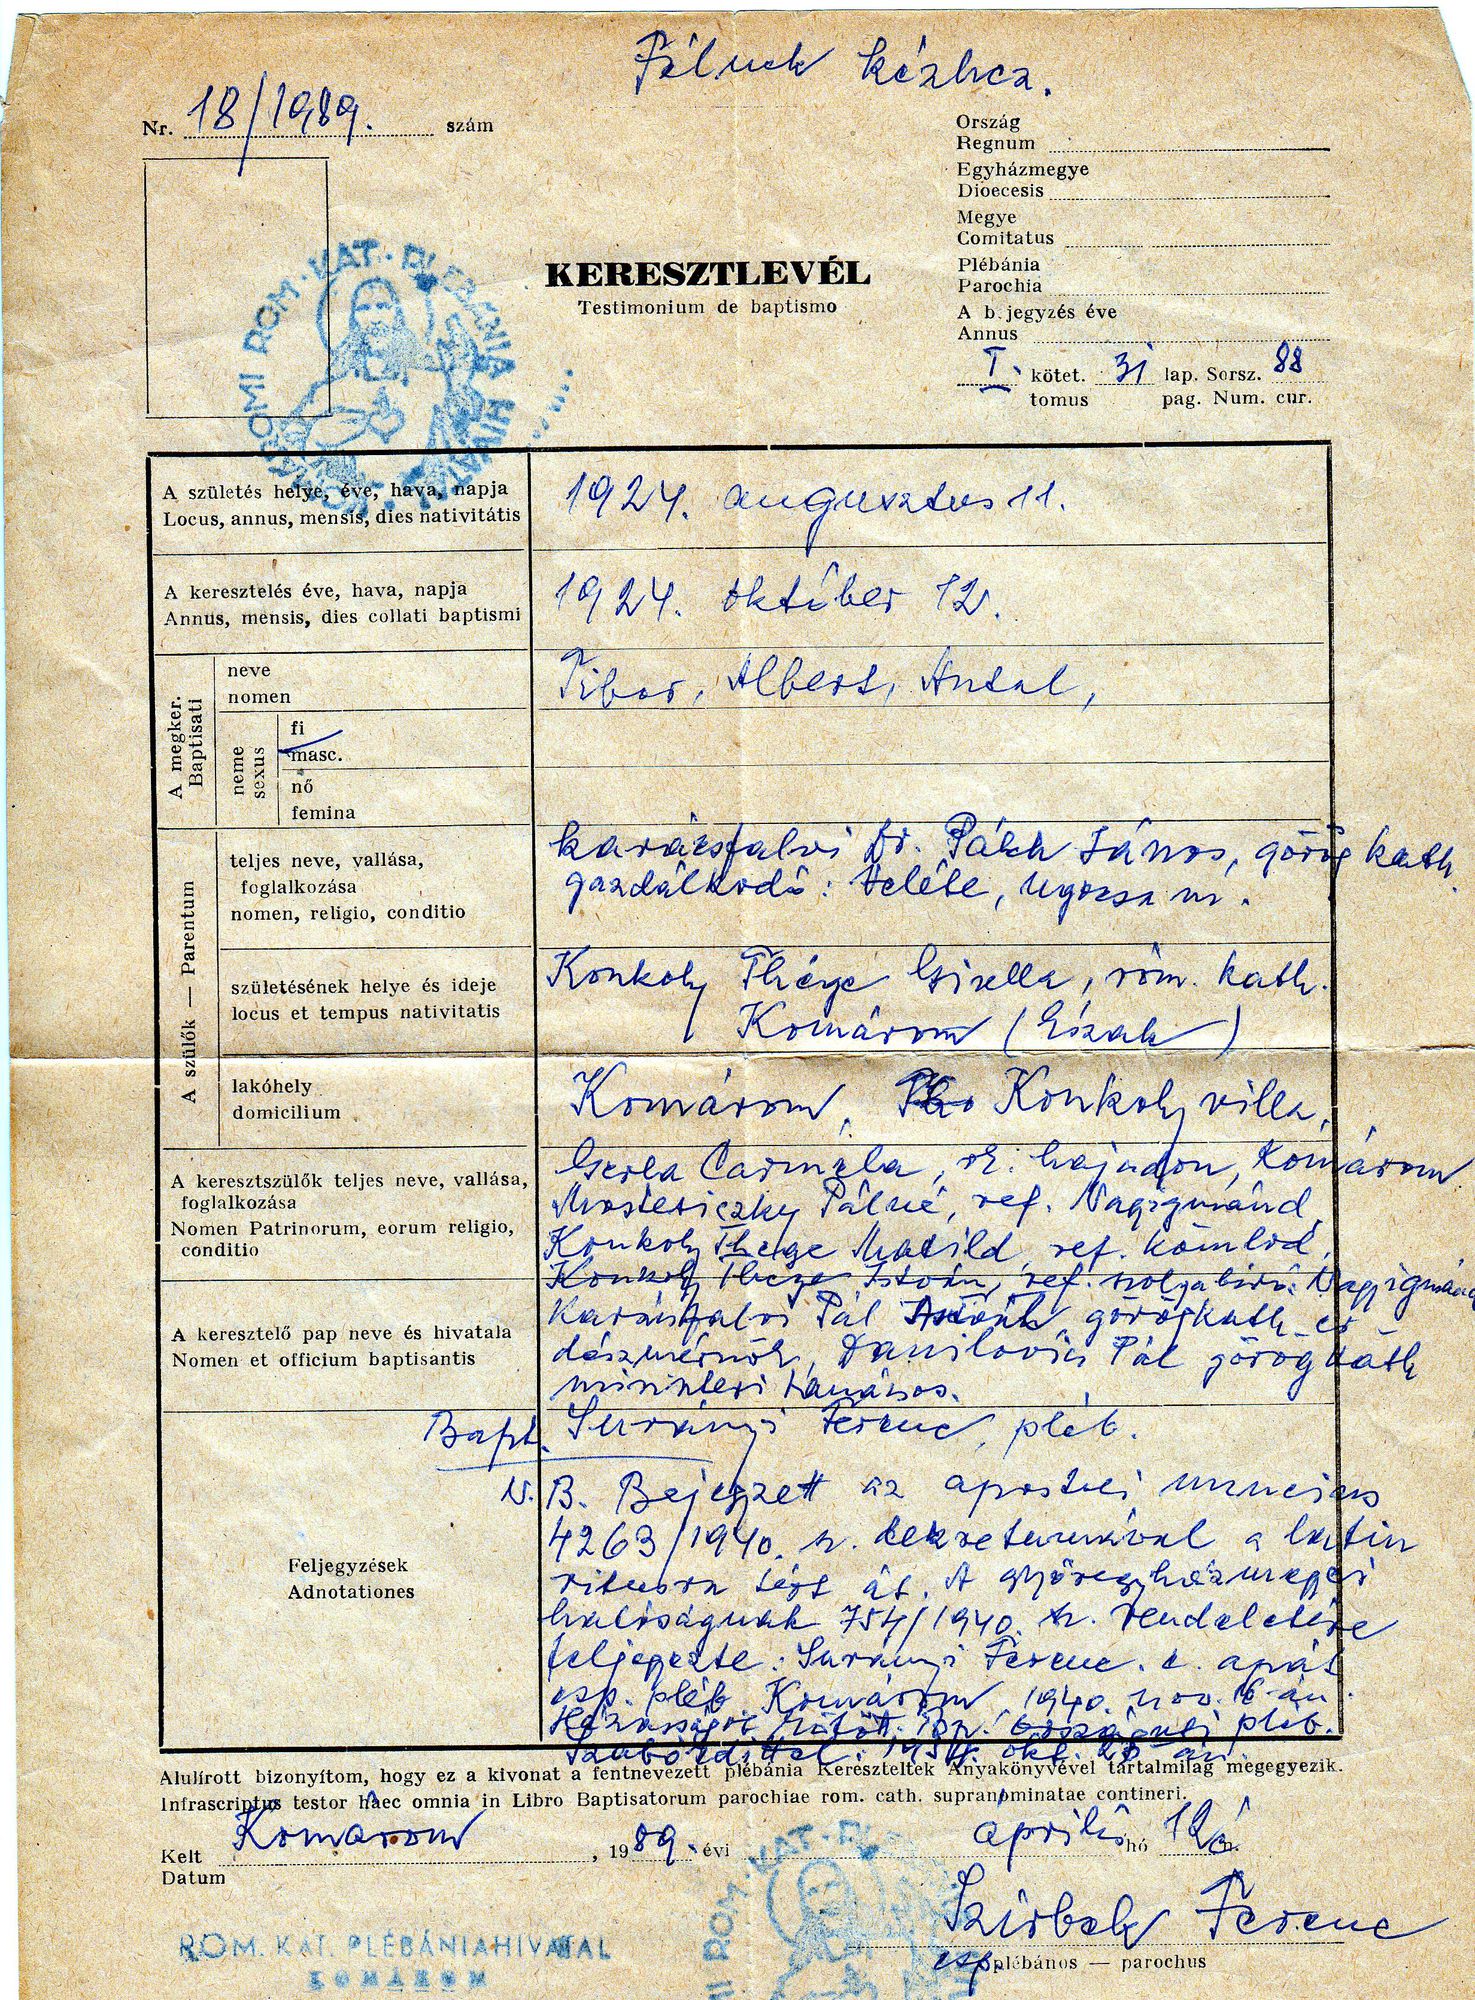 Pálnek kézhez.
Nr. 18/1989. szám
Ország
Regnum
Egyházmegye
Dioecesis
Megye
Comitatus
Plébánia
Parochia
A b. jegyzés éve
Annus
I. kötet. 31 lap. Sorsz. 88
tomus pag. Num. cur.
KOMÁROMI ROM. KAT. PLÉBÁNIA HIVATAL
KERESZTLEVÉL
Testimonium de baptismo
A születés helye, éve, hava, napja
Locus, annus, mensis, dies nativitátis
1924. augusztus 11.
A keresztelés éve, hava, napja
Annus, mensis, dies collati baptismi
1924. október 12.
A megker.
Baptisati
neve
nomen
Tibor, Albert, Antal,
neme
sexus
fi
masc.
nő
femina
A szülők — Parentum
teljes neve, vallása,
foglalkozása
nomen, religio, conditio
karácsfalvi Dr. Pákh János, görög kath.
gazdálkodó: , Ugocsa m.
születésének helye és ideje
locus et tempus nativitatis
Konkoly Thége Gizella, róm. kath.
Komárom (Észak)
lakóhely
domicilium
Komárom, Konkoly villa,
A keresztszülők teljes neve, vallása,
foglalkozása
Nomen Patrinorum, eorum religio,
conditio
Carmela, rk. hajadon, Komárom
Pálné, ref. Nagyigmánd
Konkoly Thege Matild ref. Kömlőd,
Konkoly Thege István, ref. szolgabíró. Nagyigmánd
A keresztelő pap neve és hivatala
Nomen et officium baptisantis
Karácsfalvi Pál görögkath er-
dészmérnök, Danilovics Pál görögkath
miniszteri tanácsos.
Bapt. Surányi Ferenc, pléb.
Feljegyzések
Adnotationes
N.B. Bejegyzett az apostoli nuncius
4263/1940. sz. dekretumával a latin
ritusra tért át. A győregyházmegyei
hatóságnak 754/1940. sz. rendeletére
feljegyezte: Surányi Ferenc. c. apát
esp. pléb. Komárom, 1940. nov. 16-án.
Házasságot kötött. Bp. pléb.
Szabó Edittel: okt. án
Alulírott bizonyítom, hogy ez a kivonat a fentnevezett plébánia Kereszteltek Anyakönyvével tartalmilag megegyezik.
Infrascriptus testor haec omnia in Libro Baptisatorum parochiae rom. cath. supranominatae contineri.
Kelt Komárom, 1989. évi április hó 12 én.
Datum
Szirbek Ferenc
esp. plébános — parochus
ROM. KAT. PLÉBÁNIAHIVATAL
KOMÁROM